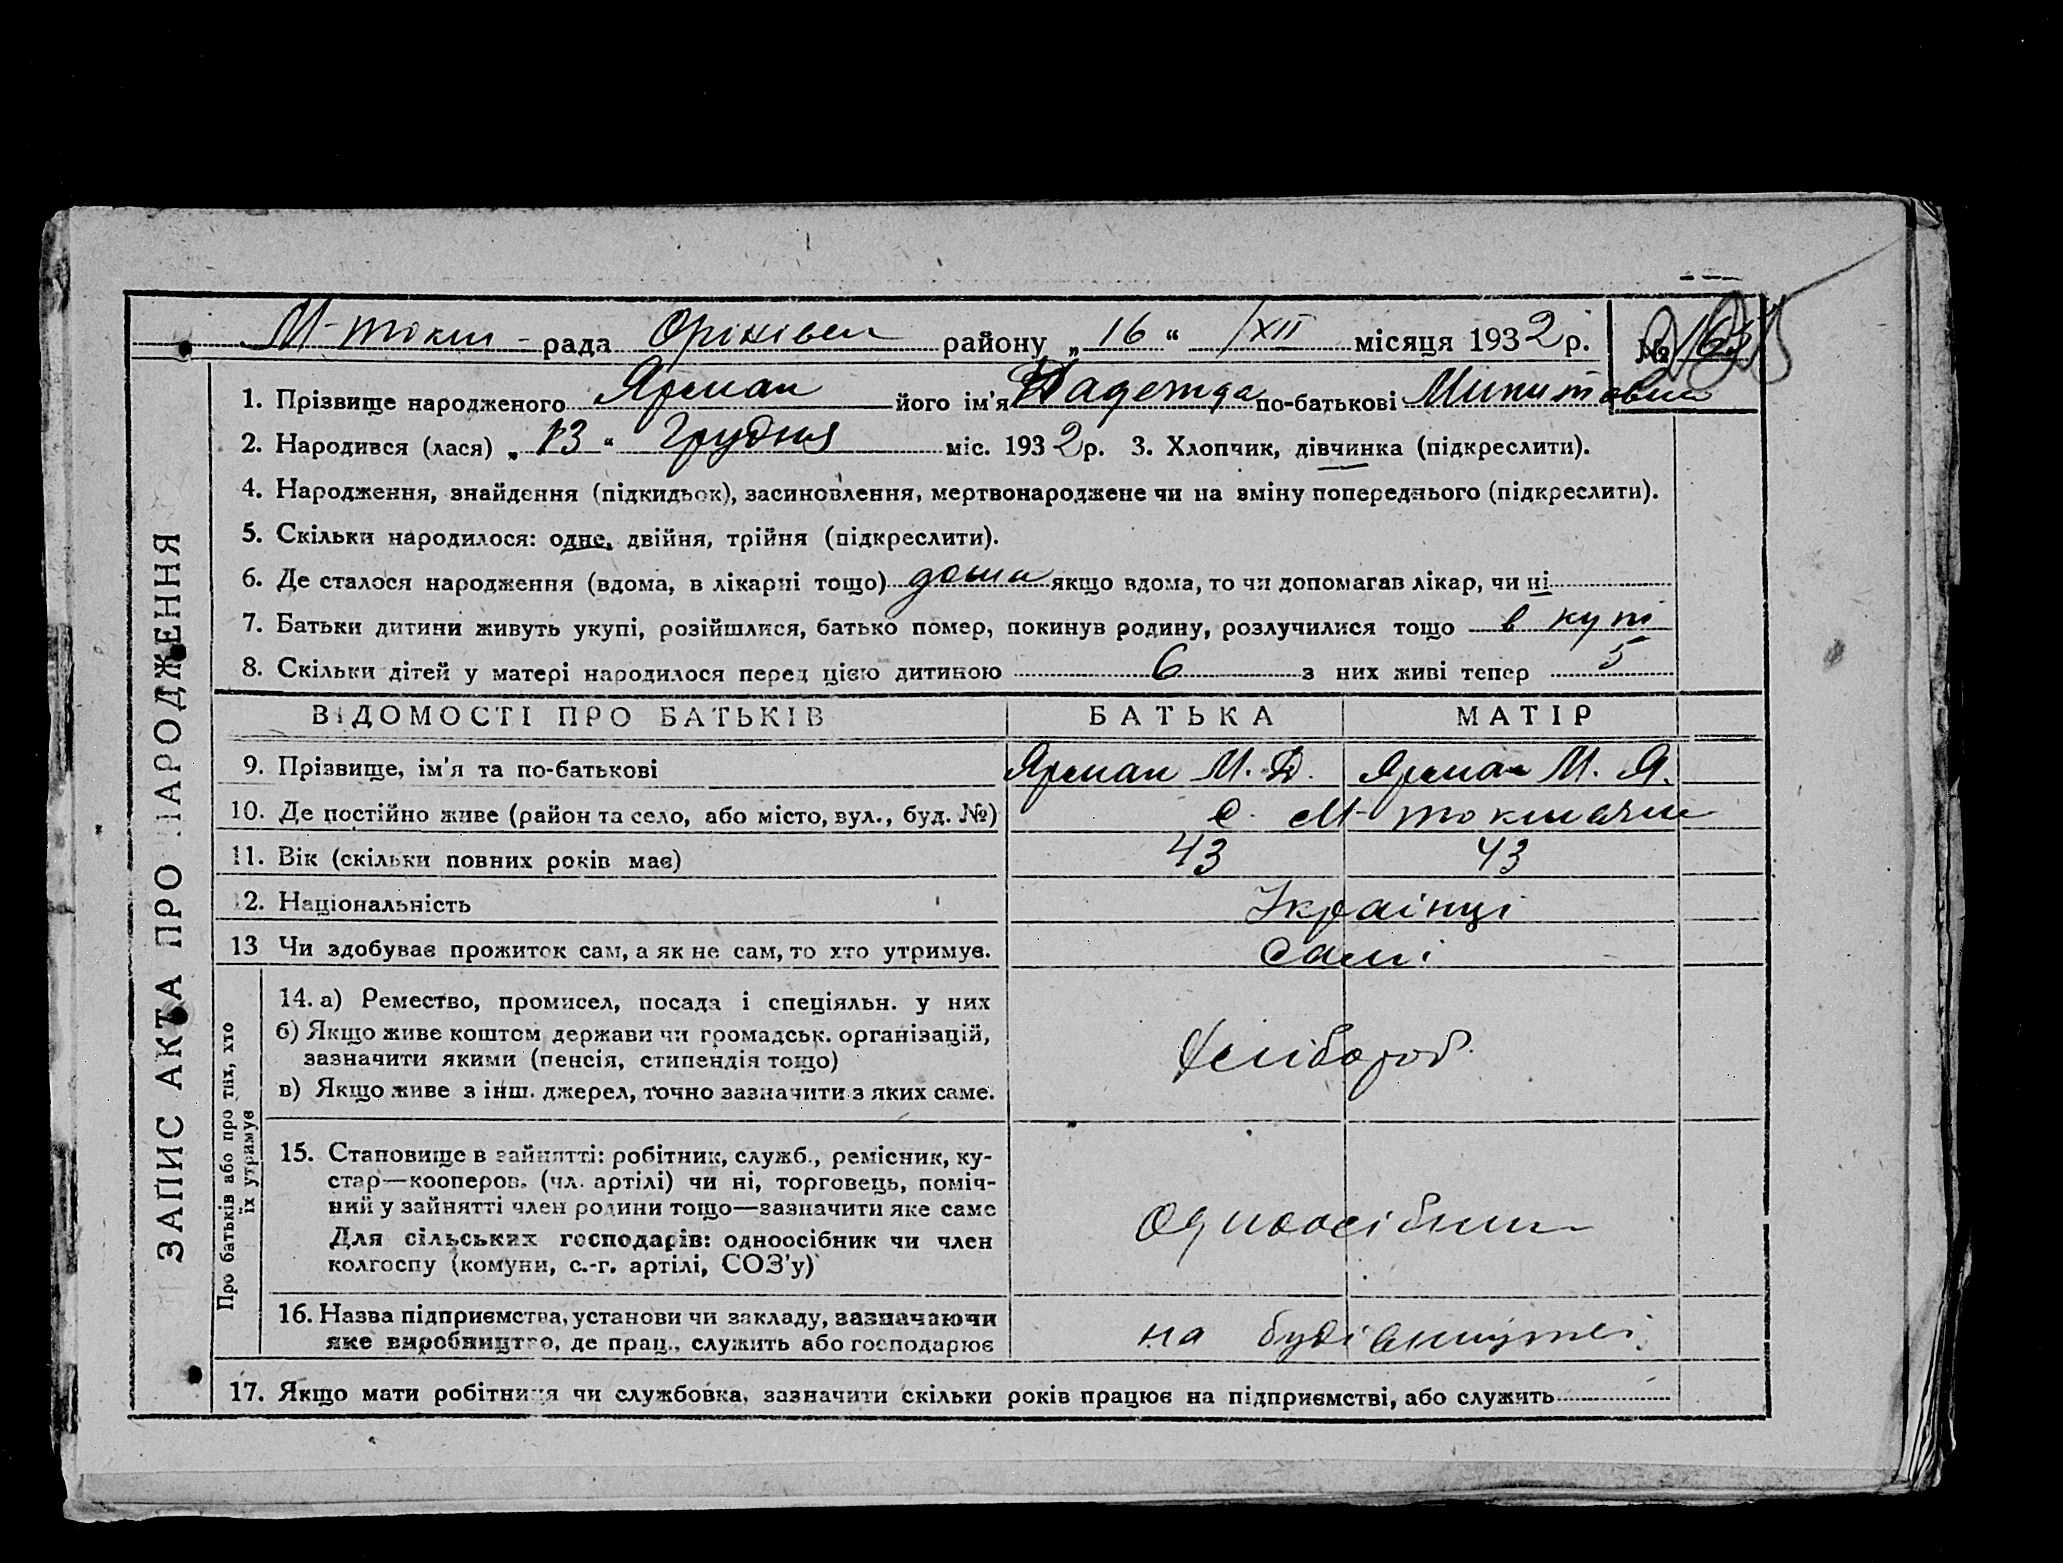 М-токм - рада Оріхівськ району „ 16 “ /XII місяця 1932 р. № 163
1. Прізвище народженого Ярман його ім'я Надежда по-батькові Микитовна
2. Народився (лася) „ 13 “ Грудня міс. 1932 р. 3. Хлопчик, дівчинка (підкреслити).
4. Народження, знайдення (підкидьок), засиновлення, мертвонароджене чи на зміну попереднього (підкреслити).
5. Скільки народилося: одне, двійня, трійня (підкреслити).
6. Де сталося народження (вдома, в лікарні тощо) дома якщо вдома, то чи допомагав лікар, чи ні
7. Батьки дитини живуть укупі, розійшлися, батько помер, покинув родину, розлучилися тощо в купі
8. Скільки дітей у матері народилося перед цією дитиною 6 з них живі тепер 5
ВІДОМОСТІ ПРО БАТЬКІВ БАТЬКА МАТІР
9. Прізвище, ім'я та по-батькові Ярман М. Д. Ярман М. Я.
10. Де постійно живе (район та село, або місто, вул., буд. №) с. М-токмачки
11. Вік (скільки повних років має) 43 43
12. Національність Українці
13 Чи здобуває прожиток сам, а як не сам, то хто утримує. Самі
14. а) Ремество, промисел, посада і спеціяльн. у них
б) Якщо живе коштом держави чи громадськ. організацій,
зазначити якими (пенсія, стипендія тощо) хлібороб
в) Якщо живе з інш. джерел, точно зазначити з яких саме.
15. Становище в зайнятті: робітник, служб., ремісник, ку-
стар—кооперов. (чл. артілі) чи ні, торговець, поміч-
ний у зайнятті член родини тощо—зазначити яке саме
Для сільських господарів: одноосібник чи член одноосібник
колгоспу (комуни, с.-г. артілі, СОЗ'у)
16. Назва підприємства, установи чи закладу, зазначаючи
яке виробництво, де прац., служить або господарює на будівництві
17. Якщо мати робітниця чи службовка, зазначити скільки років працює на підприємстві, або служить
ЗАПИС АКТА ПРО НАРОДЖЕННЯ
Про батьків або про тих, хто
їх утримує